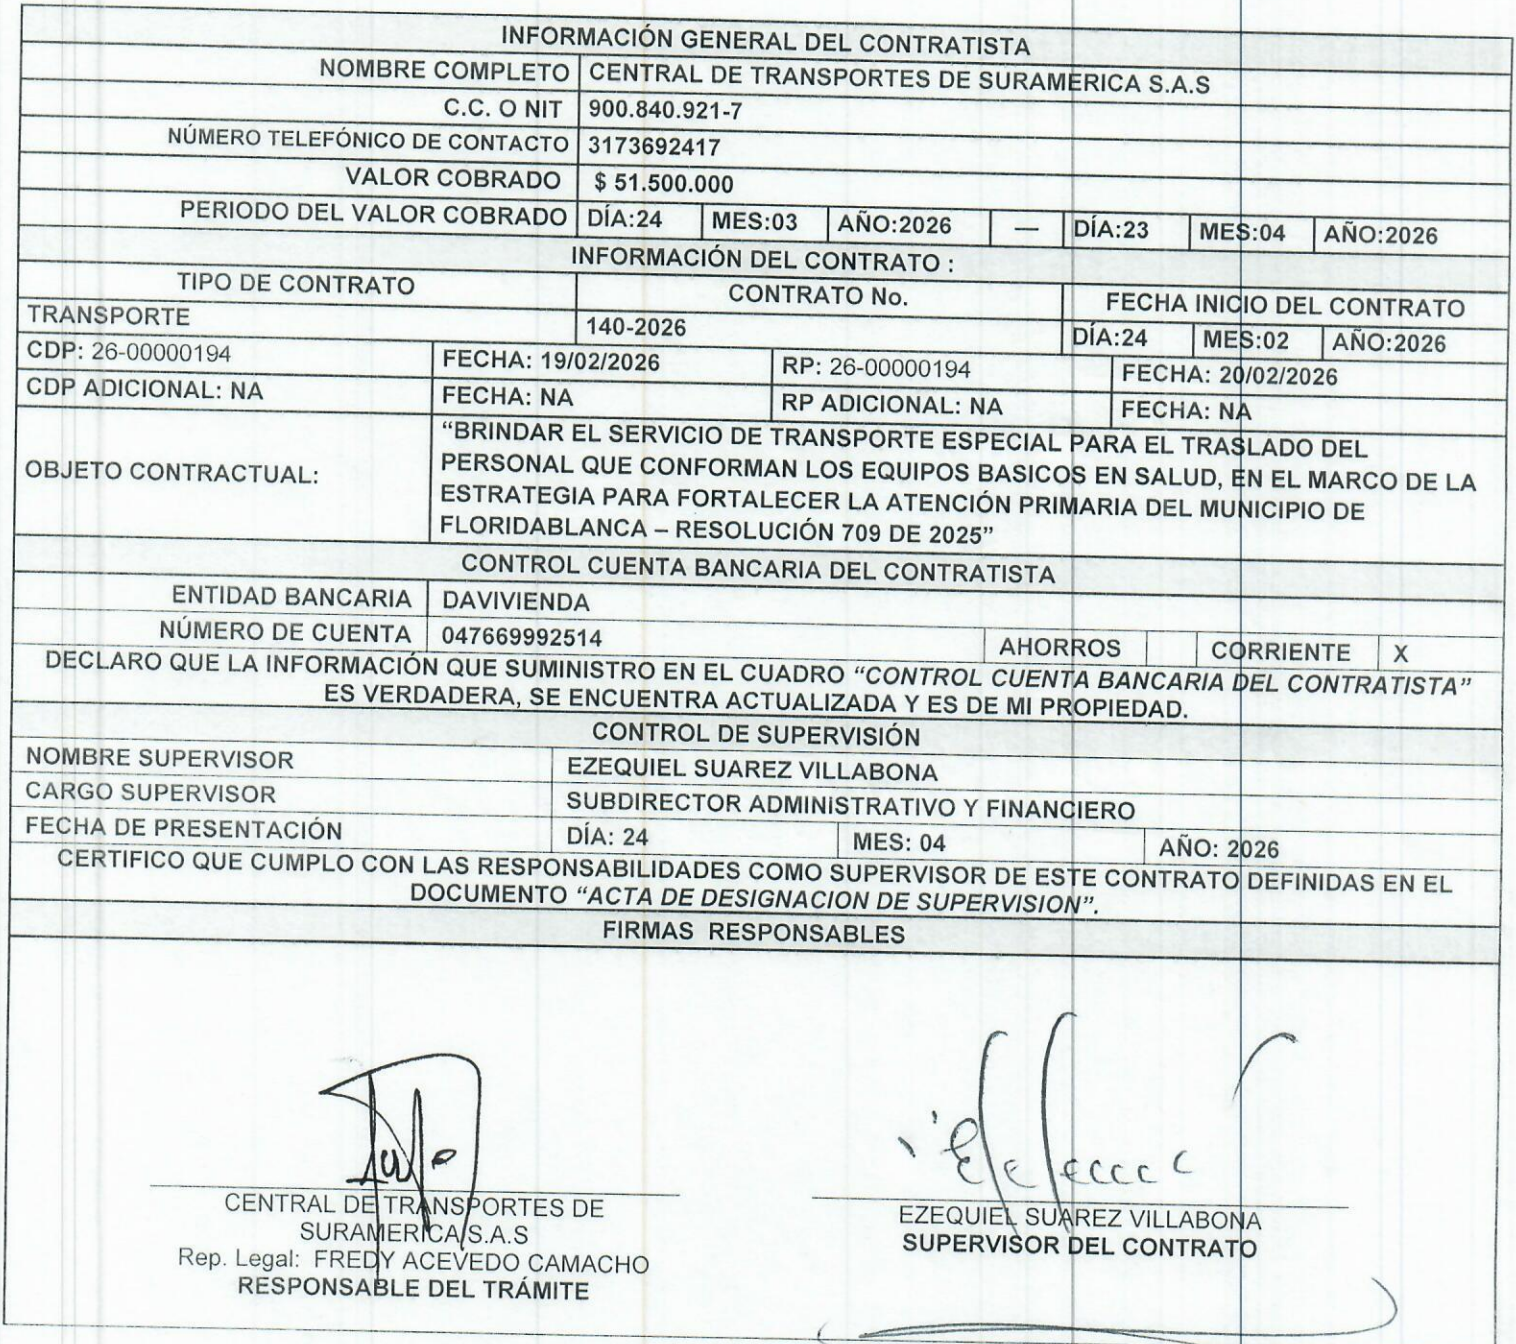 INFORMACIÓN GENERAL DEL CONTRATISTA
NOMBRE COMPLETO CENTRAL DE TRANSPORTES DE SURAMERICA S.A.S
C.C. O NIT 900.840.921-7
NÚMERO TELEFÓNICO DE CONTACTO 3173692417
VALOR COBRADO $ 51.500.000
PERIODO DEL VALOR COBRADO DÍA:24 MES:03 AÑO:2026 — DÍA:23 MES:04 AÑO:2026
INFORMACIÓN DEL CONTRATO :
TIPO DE CONTRATO CONTRATO No. FECHA INICIO DEL CONTRATO
TRANSPORTE 140-2026 DÍA:24 MES:02 AÑO:2026
CDP: 26-00000194 FECHA: 19/02/2026 RP: 26-00000194 FECHA: 20/02/2026
CDP ADICIONAL: NA FECHA: NA RP ADICIONAL: NA FECHA: NA
OBJETO CONTRACTUAL:
“BRINDAR EL SERVICIO DE TRANSPORTE ESPECIAL PARA EL TRASLADO DEL
PERSONAL QUE CONFORMAN LOS EQUIPOS BASICOS EN SALUD, EN EL MARCO DE LA
ESTRATEGIA PARA FORTALECER LA ATENCIÓN PRIMARIA DEL MUNICIPIO DE
FLORIDABLANCA – RESOLUCIÓN 709 DE 2025”
CONTROL CUENTA BANCARIA DEL CONTRATISTA
ENTIDAD BANCARIA DAVIVIENDA
NÚMERO DE CUENTA 047669992514 AHORROS CORRIENTE X
DECLARO QUE LA INFORMACIÓN QUE SUMINISTRO EN EL CUADRO “CONTROL CUENTA BANCARIA DEL CONTRATISTA”
ES VERDADERA, SE ENCUENTRA ACTUALIZADA Y ES DE MI PROPIEDAD.
CONTROL DE SUPERVISIÓN
NOMBRE SUPERVISOR EZEQUIEL SUAREZ VILLABONA
CARGO SUPERVISOR SUBDIRECTOR ADMINISTRATIVO Y FINANCIERO
FECHA DE PRESENTACIÓN DÍA: 24 MES: 04 AÑO: 2026
CERTIFICO QUE CUMPLO CON LAS RESPONSABILIDADES COMO SUPERVISOR DE ESTE CONTRATO DEFINIDAS EN EL
DOCUMENTO “ACTA DE DESIGNACION DE SUPERVISION”.
FIRMAS RESPONSABLES
CENTRAL DE TRANSPORTES DE
SURAMERICA S.A.S
Rep. Legal: FREDY ACEVEDO CAMACHO
RESPONSABLE DEL TRÁMITE
EZEQUIEL SUAREZ VILLABONA
SUPERVISOR DEL CONTRATO